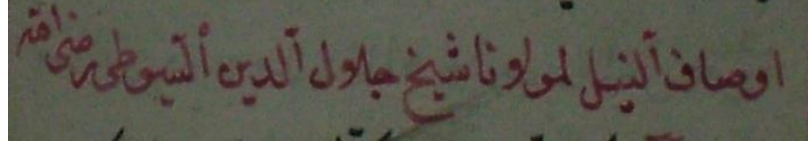 اوصاف النيل لمولانا شيخ جلال الدين السيوطى رضى الله